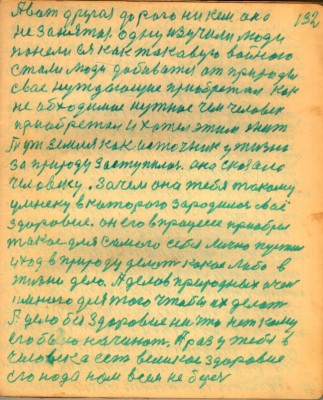 А вот другая дорога ни кем ока 132
не занятая. одну изучили люди
повели ся как такавую войного
стали люди добиватся от природы
свае нуждающие приобретал как
не обходимае нужное чем человек
приобретал и хотел этим жит
Тут земля как источник у жизни
за природу заступилас. ана сказала
человеку. Зачем она тебя такому
умнеку в каторого зародилося сваё
здоровие. он его в процессе приобрел
такое для самого себя лично пустил
уход в природу делат какое либо в
жизни дело. А делов природных очен
много для того чтобы их делат
А дело без здоровие ни что нет кому
его бы но начинат. А раз у тебя в
человека ест великое здоровие
его нада нам всем не береч